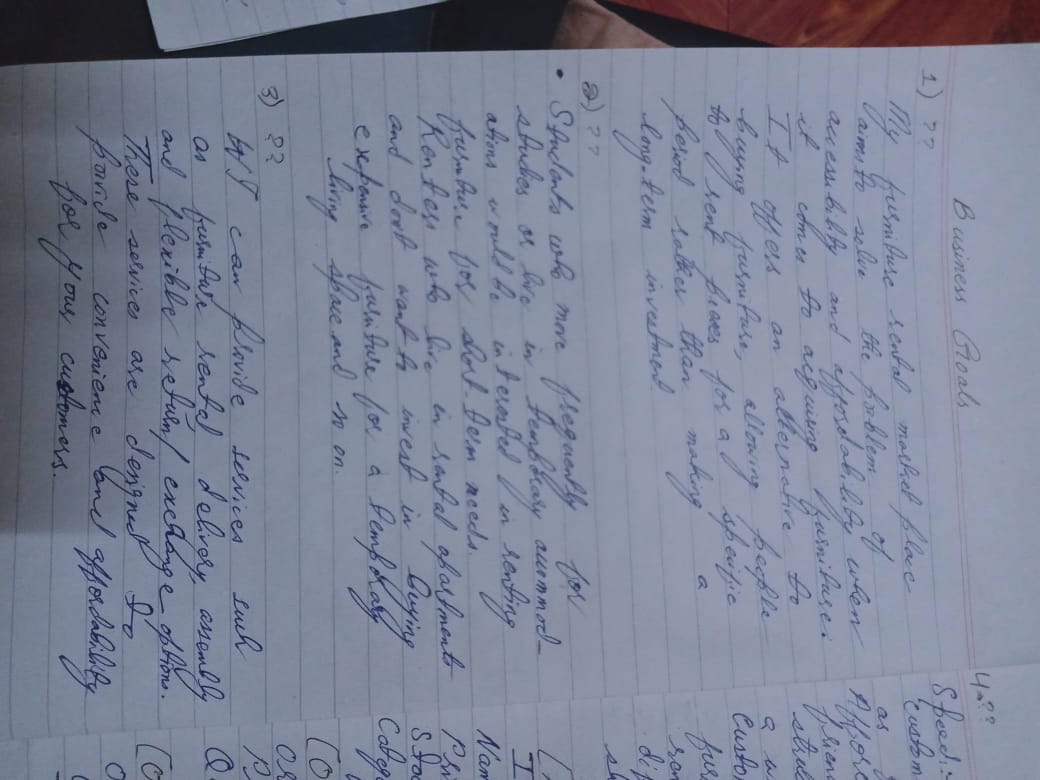 Business Goals
1) ??
My furniture rental market place
aims to solve the problem of
accessibility and affordability when
it comes to acquiring furniture.
It offers an alternative to
buying furniture, allowing people
to rent pieces for a specific
period rather than making a
long-term investment
2) ??
• Students who move frequently for
studies or live in temporary accommod-
ations would be interested in renting
furniture for short-term needs.
Renters who live in rental apartments
and don't want to invest in buying
expensive furniture for a temporary
living space and so on.
3) ??
I can provide services such
as furniture rental, delivery, assembly
and flexible return/exchange options.
These services are designed to
provide convenience and affordability
for your customers.
4.??
Speed:-
custom
as
Affor
friend
a w
Custom
fur
ren
dif
Nam
Pri
Stoc
Categ
[O
Or
P
Q
[O
O